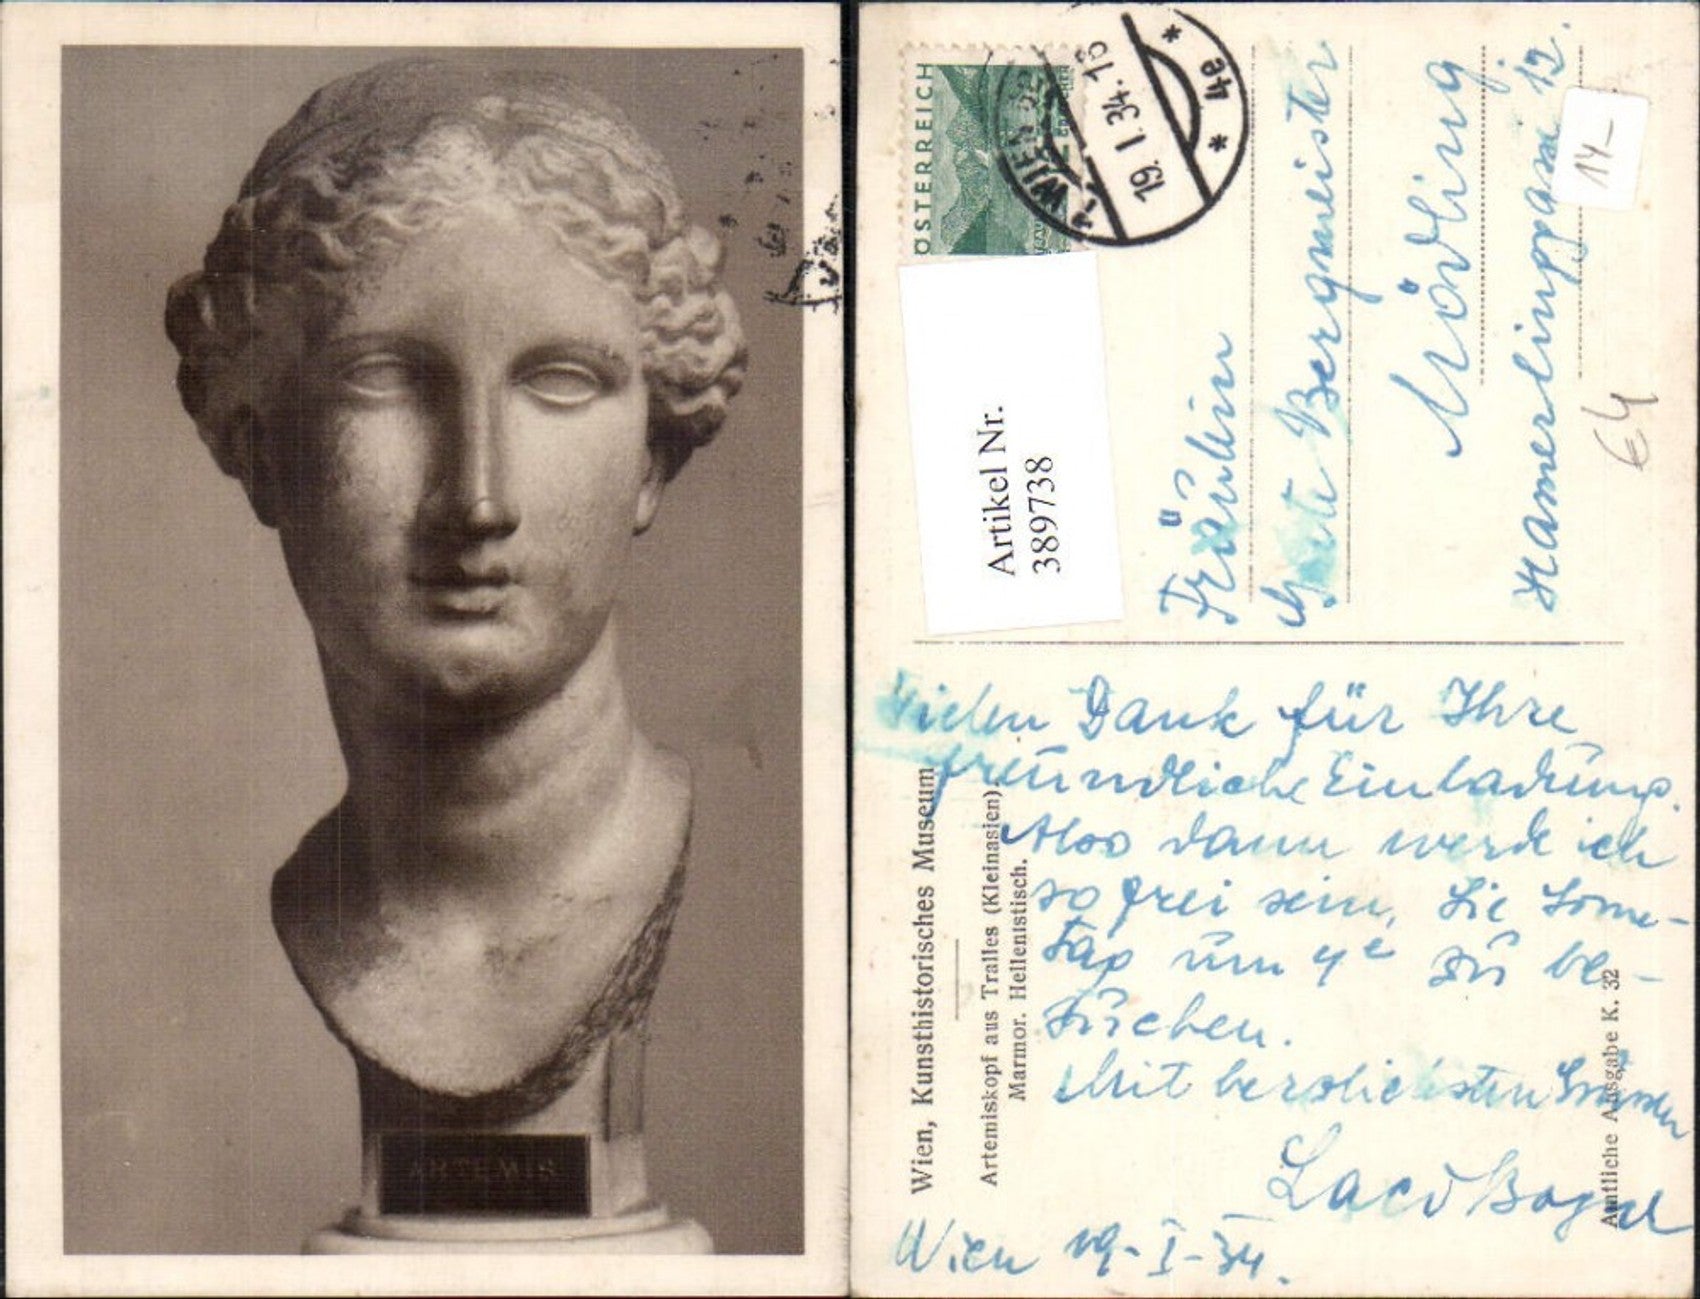 ARTEMIS
ÖSTERREICH
1 WIEN 1
19. I. 34. 18
* 4e *
Artikel Nr.
389738
14-
€4
Fräulein
Grete Bergmeister
Mödling
Hamerlinggasse 12.
Wien, Kunsthistorisches Museum
Artemiskopf aus Tralles (Kleinasien).
Marmor. Hellenistisch.
Amtliche Ausgabe K. 32
Vielen Dank für Ihre
freundliche Einladung.
Also dann werde ich
so frei sein, Sie Sonn-
tag um 4h zu be-
suchen.
Mit herzlichsten Grüssen
Wien 19-I-34.